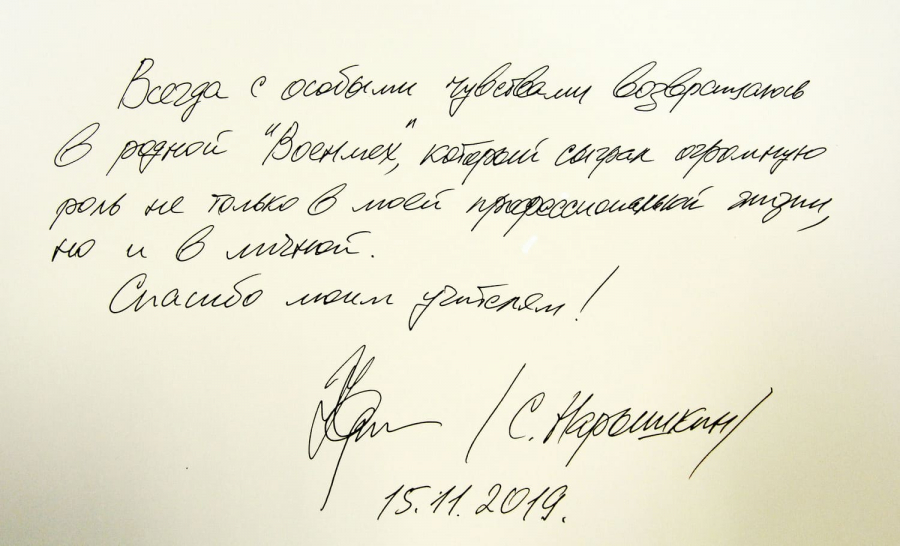 Всегда с особыми чувствами возвращаюсь
в родной "Военмех", который сыграл огромную
роль не только в моей профессиональной жизни,
но и в личной.
Спасибо моим учителям!
/С. Нарышкин/
15.11.2019.